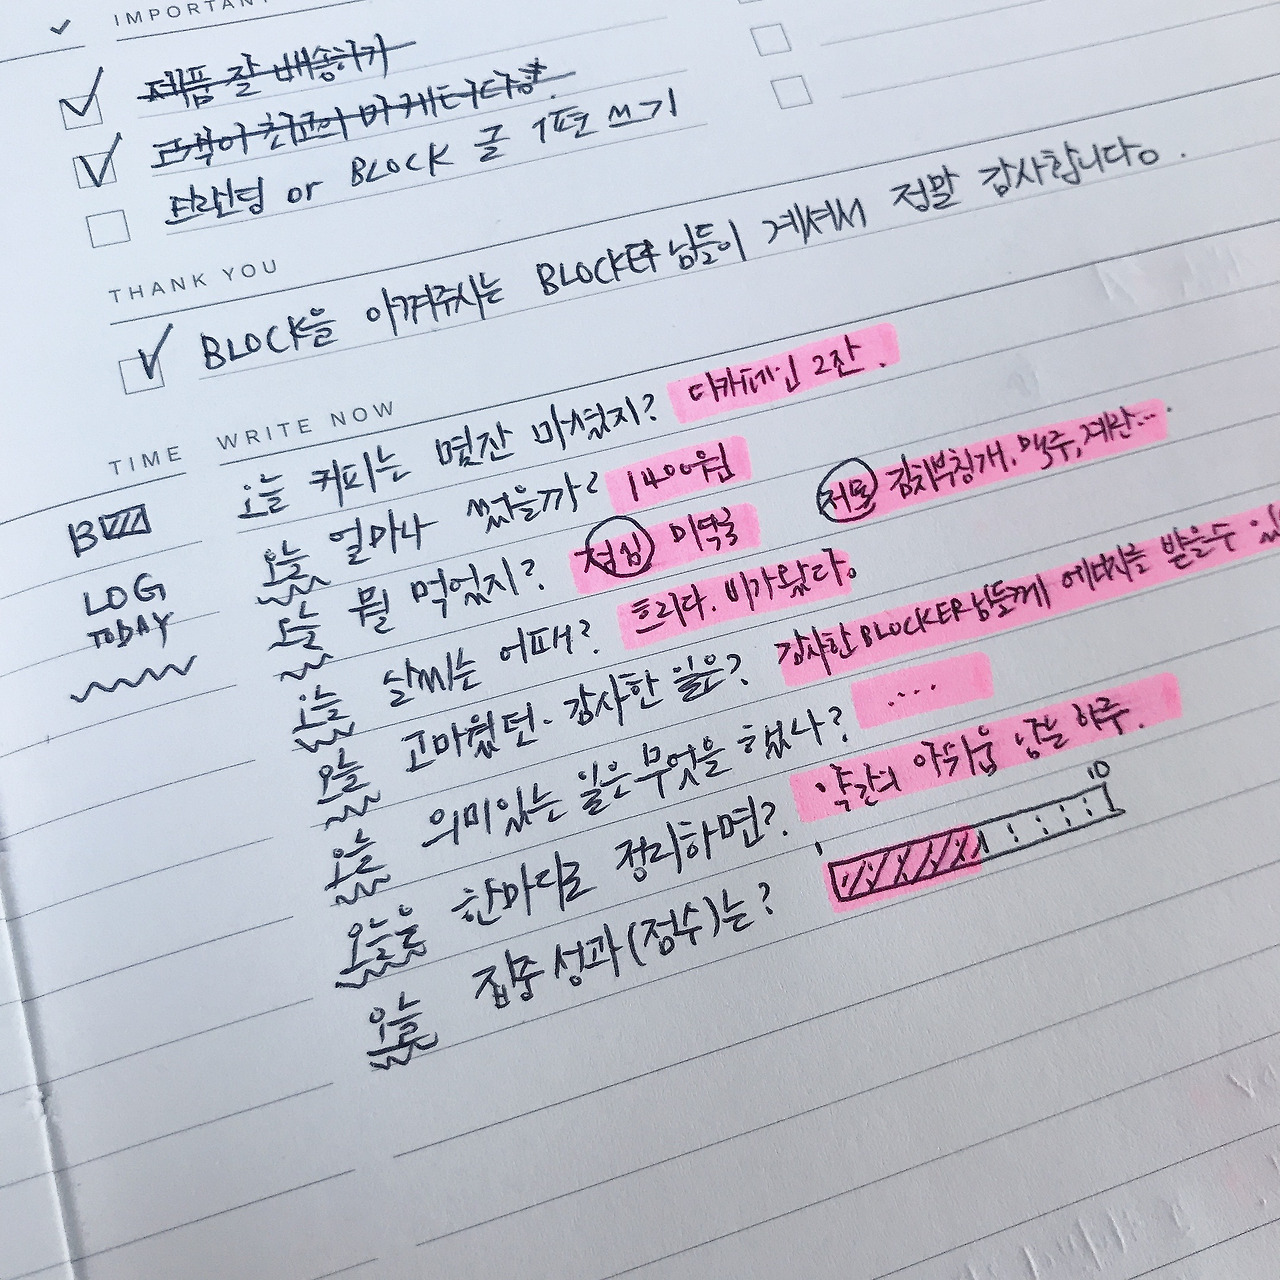 IMPORTAN
제품 잘 배송하기
고객이 친구의 마케터다!
트랜딩 or BLOCK 글 1편 쓰기
THANK YOU
BLOCK을 아껴주시는 BLOCKER님들이 계셔서 정말 감사합니다.
TIME WRITE NOW
오늘 커피는 몇잔 마셨지? 디카페인 2잔.
오늘 얼마나 썼을까? 1400원
오늘 뭘 먹었지? 점심 미역국 저녁 김치부침개, 맥주, 계란...
오늘 날씨는 어때? 흐리다. 비가왔다.
오늘 고마웠던·감사한 일은? 감사한 BLOCKER님들께 에너지를 받을수 있
오늘 의미있는 일은 무엇을 했나? ...
오늘을 한마디로 정리하면? 약간의 아쉬움 남는 하루.
오늘 집중 성과(점수)는? 10
B
LOG
TODAY